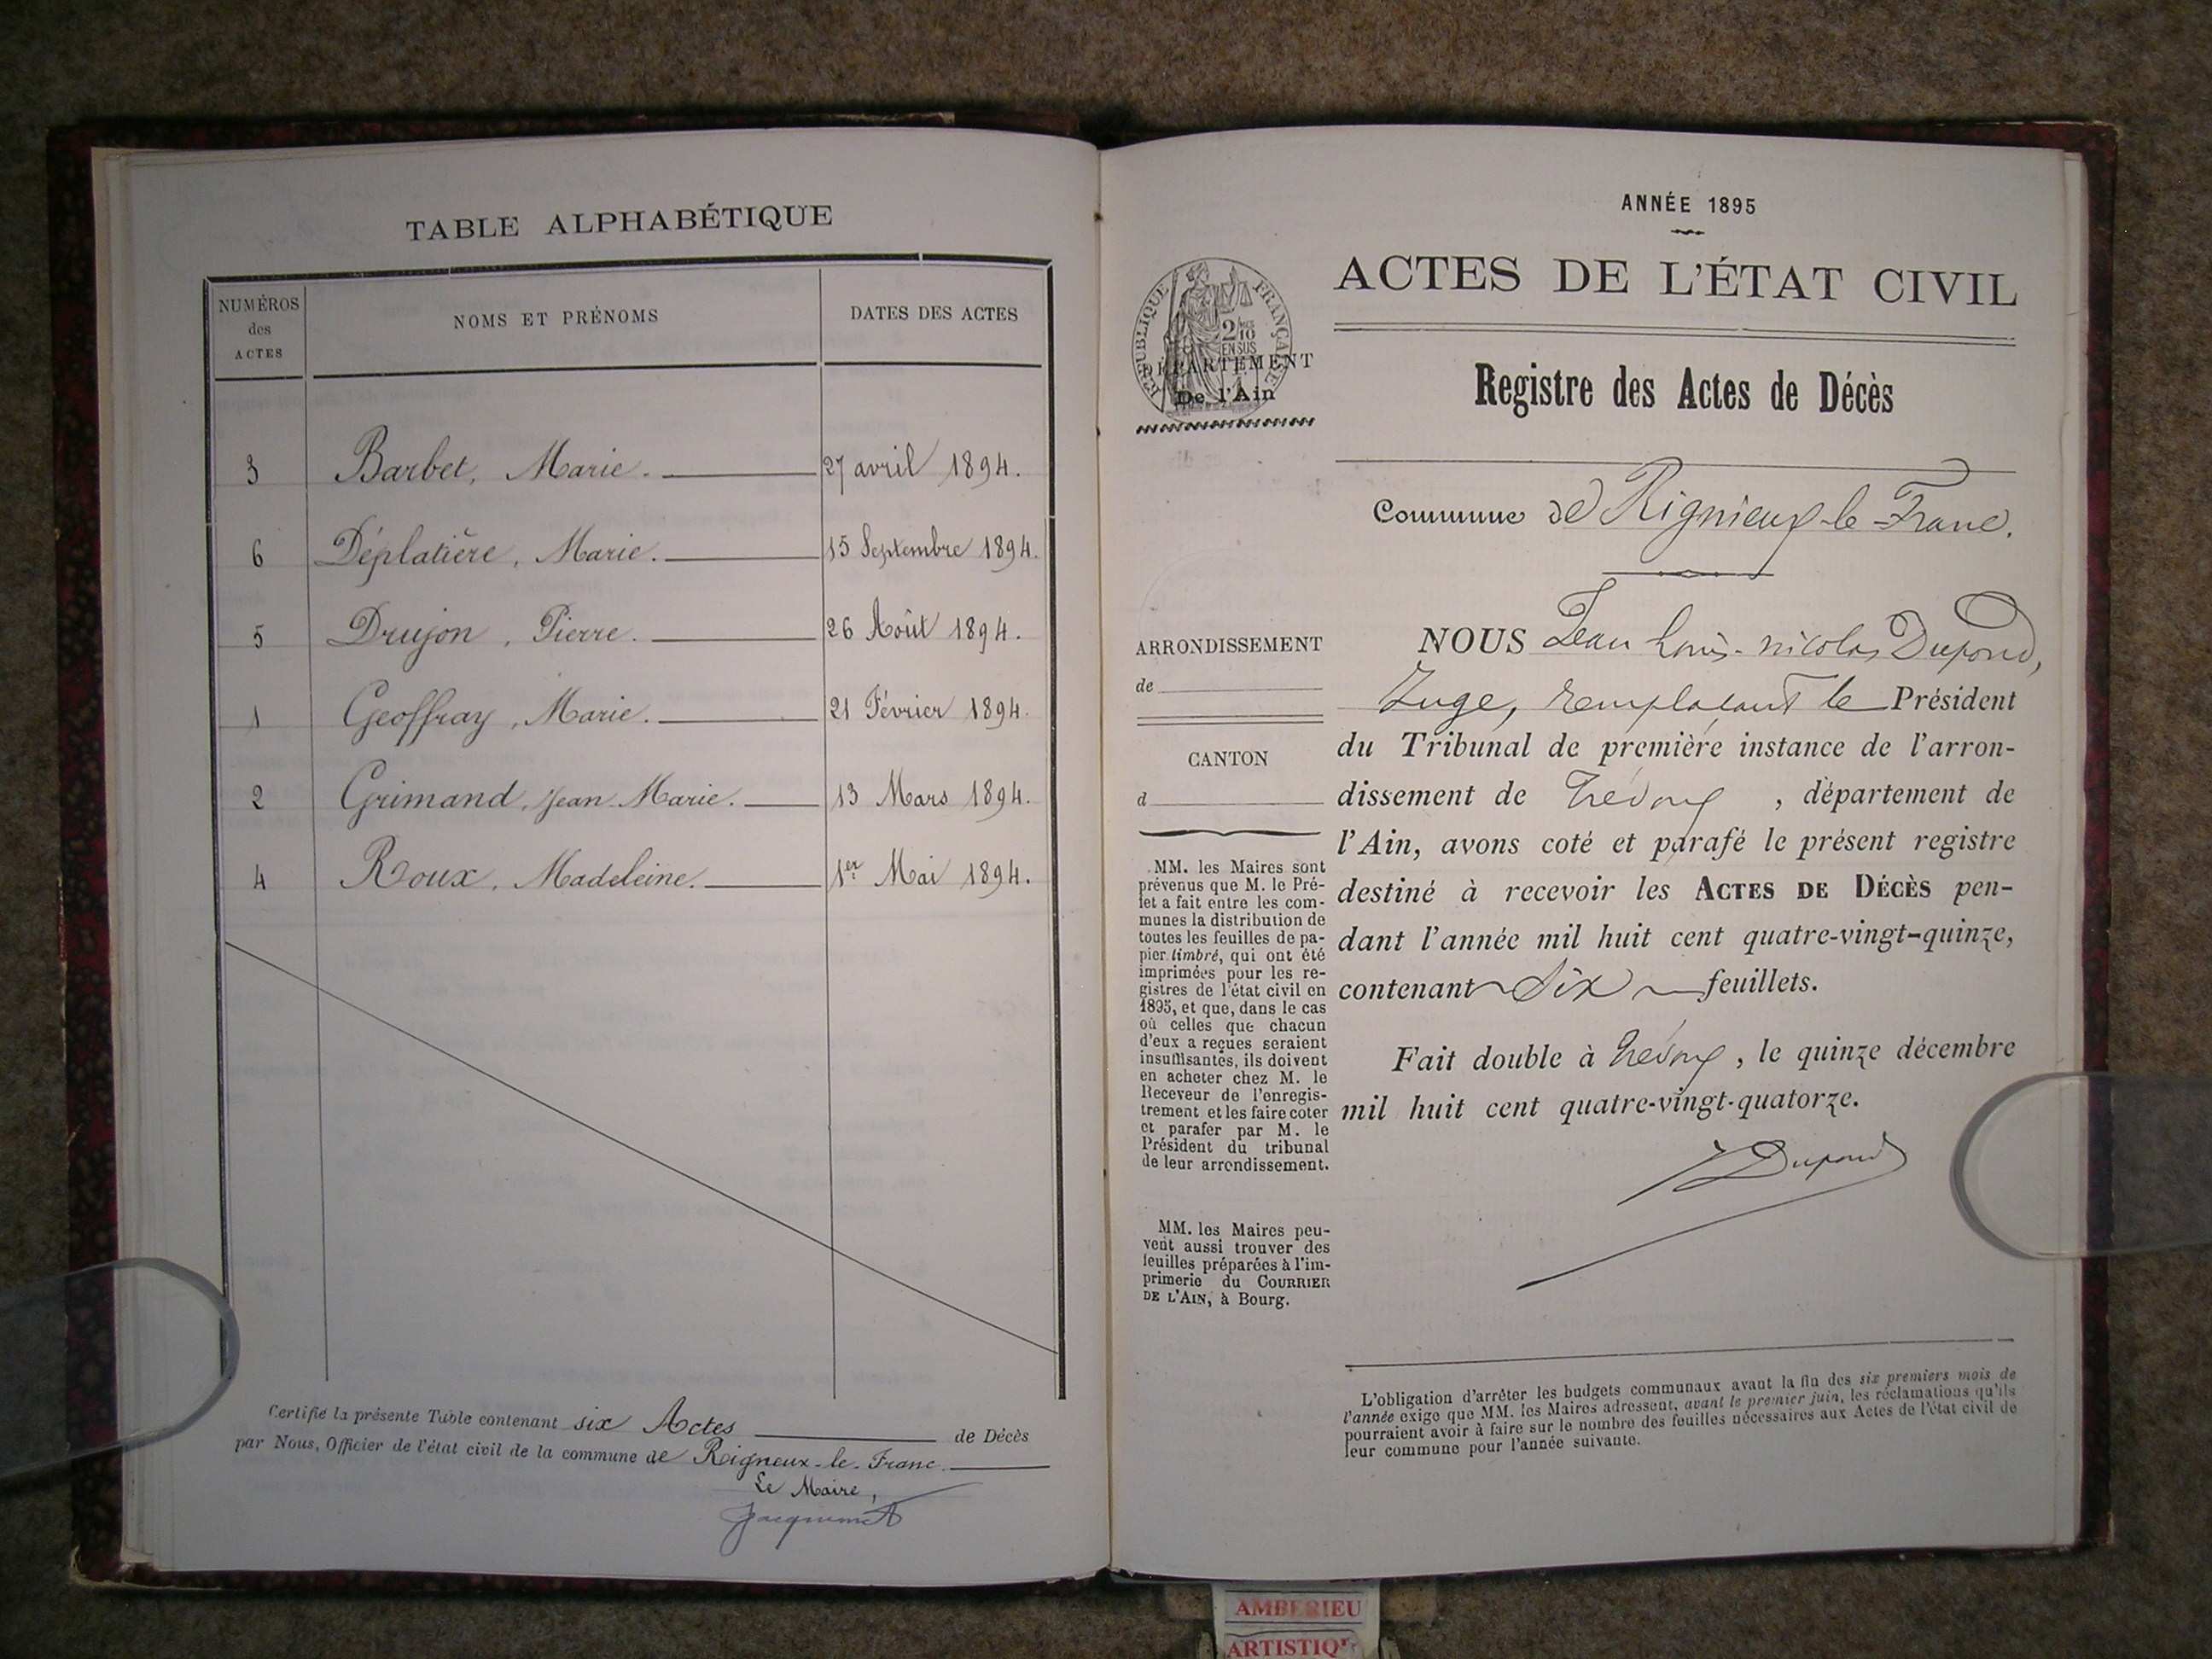 TABLE ALPHABÉTIQUE
NUMÉROS
des
ACTES
NOMS ET PRÉNOMS
DATES DES ACTES
3 Barbet, Marie. 27 avril 1894.
6 Déplatière, Marie. 15 Septembre 1894.
5 Drujon, Pierre. 26 Août 1894.
1 Geoffray, Marie. 21 Février 1894.
2 Grimand, Jean-Marie. 13 Mars 1894.
4 Roux, Madeleine. 1er Mai 1894.
Certifié la présente Table contenant six Actes de Décès
par Nous, Officier de l'état civil de la commune de Rigneux-le-Franc.
Le Maire,
ANNÉE 1895
ACTES DE L'ÉTAT CIVIL
RÉPUBLIQUE FRANÇAISE
2/10
EN SUS
DÉPARTEMENT
De l'Ain
Registre des Actes de Décès
Commune de Rignieux-le-Franc.
ARRONDISSEMENT
de
CANTON
d
MM. les Maires sont
prévenus que M. le Pré-
fet a fait entre les com-
munes la distribution de
toutes les feuilles de pa-
pier timbré, qui ont été
imprimées pour les re-
gistres de l'état civil en
1895, et que, dans le cas
où celles que chacun
d'eux a reçues seraient
insuffisantes, ils doivent
en acheter chez M. le
Receveur de l'enregis-
trement et les faire coter
et parafer par M. le
Président du tribunal
de leur arrondissement.
MM. les Maires peu-
vent aussi trouver des
feuilles préparées à l'im-
primerie du COURRIER
DE L'AIN, à Bourg.
NOUS Jean Louis-nicolas Dupond,
Juge, remplaçant le Président
du Tribunal de première instance de l'arron-
dissement de Trévoux, département de
l'Ain, avons coté et parafé le présent registre
destiné à recevoir les ACTES DE DÉCÈS pen-
dant l'année mil huit cent quatre-vingt-quinze,
contenant Six feuillets.
Fait double à Trévoux, le quinze décembre
mil huit cent quatre-vingt-quatorze.
Dupond
L'obligation d'arrêter les budgets communaux avant la fin des six premiers mois de
l'année exige que MM. les Maires adressent, avant le premier juin, les réclamations qu'ils
pourraient avoir à faire sur le nombre des feuilles nécessaires aux Actes de l'état civil de
leur commune pour l'année suivante.
AMBERIEU